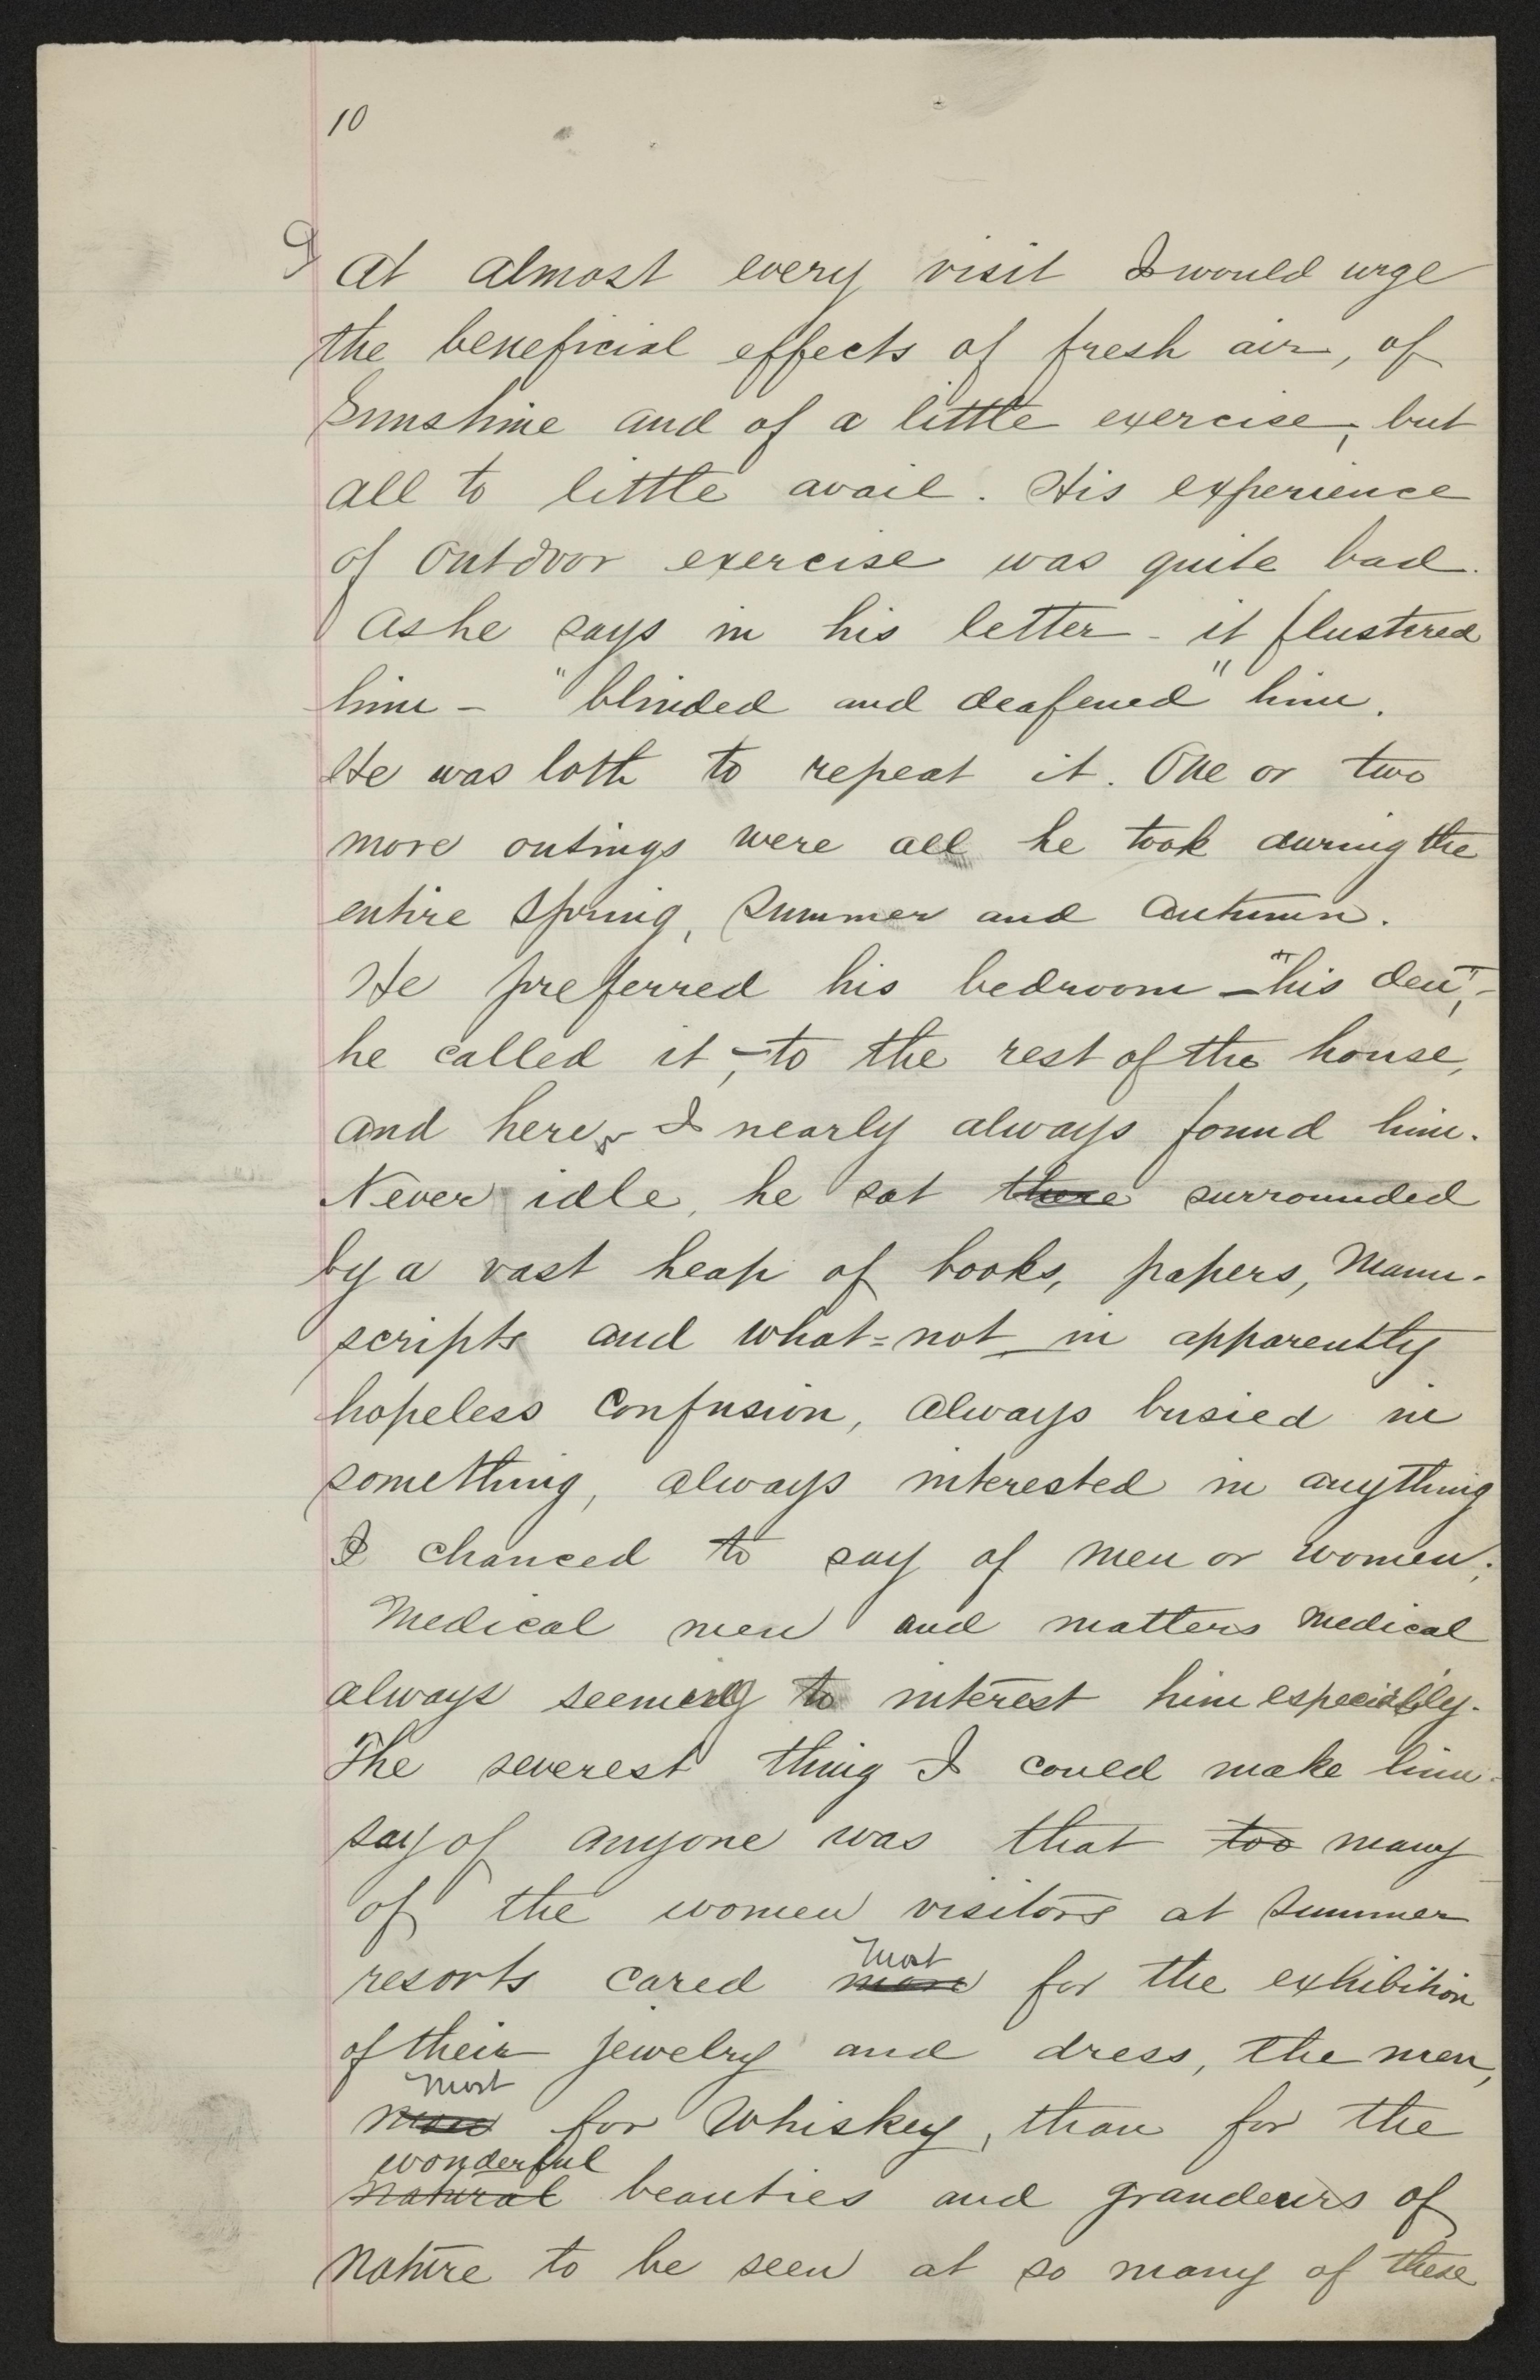 10
At almost every visit I would urge
the beneficial effects of fresh air, of
Sunshine and of a little exercise, but
all to little avail. His experience
of outdoor exercise was quite bad.
As he says in his letter - it flustered
him - "blinded and deafened" him.
He was loth to repeat it. One or two
more outings were all he took during the
entire Spring, Summer and Autumn.
He preferred his bedroom - "his den", -
he called it, - to the rest of the house,
and here, - I nearly always found him.
Never idle, he sat there surrounded
by a vast heap of books, papers, Manu-
scripts and what=not - in apparently
hopeless Confusion, always busied in
something, always interested in anything
I chanced to say of men or women;
Medical men and matters medical
always seeming to interest him especially.
The severest thing I could make him
say of anyone was that too many
of the women visitors at Summer
most
resorts cared more for the exhibition
of their jewelry and dress, the men,
most
more for Whiskey, than for the
wonderful
natural beauties and grandeurs of
Nature to be seen at so many of these